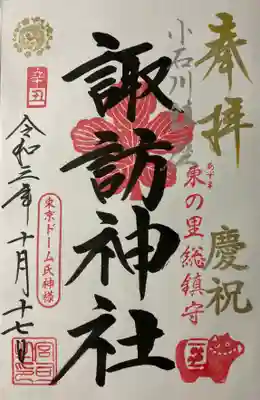 奉拝
慶祝
あずま
東の里総鎮守
小石川鎮座
諏訪神社
辛丑
令和三年十月十七日
東京ドーム氏神様